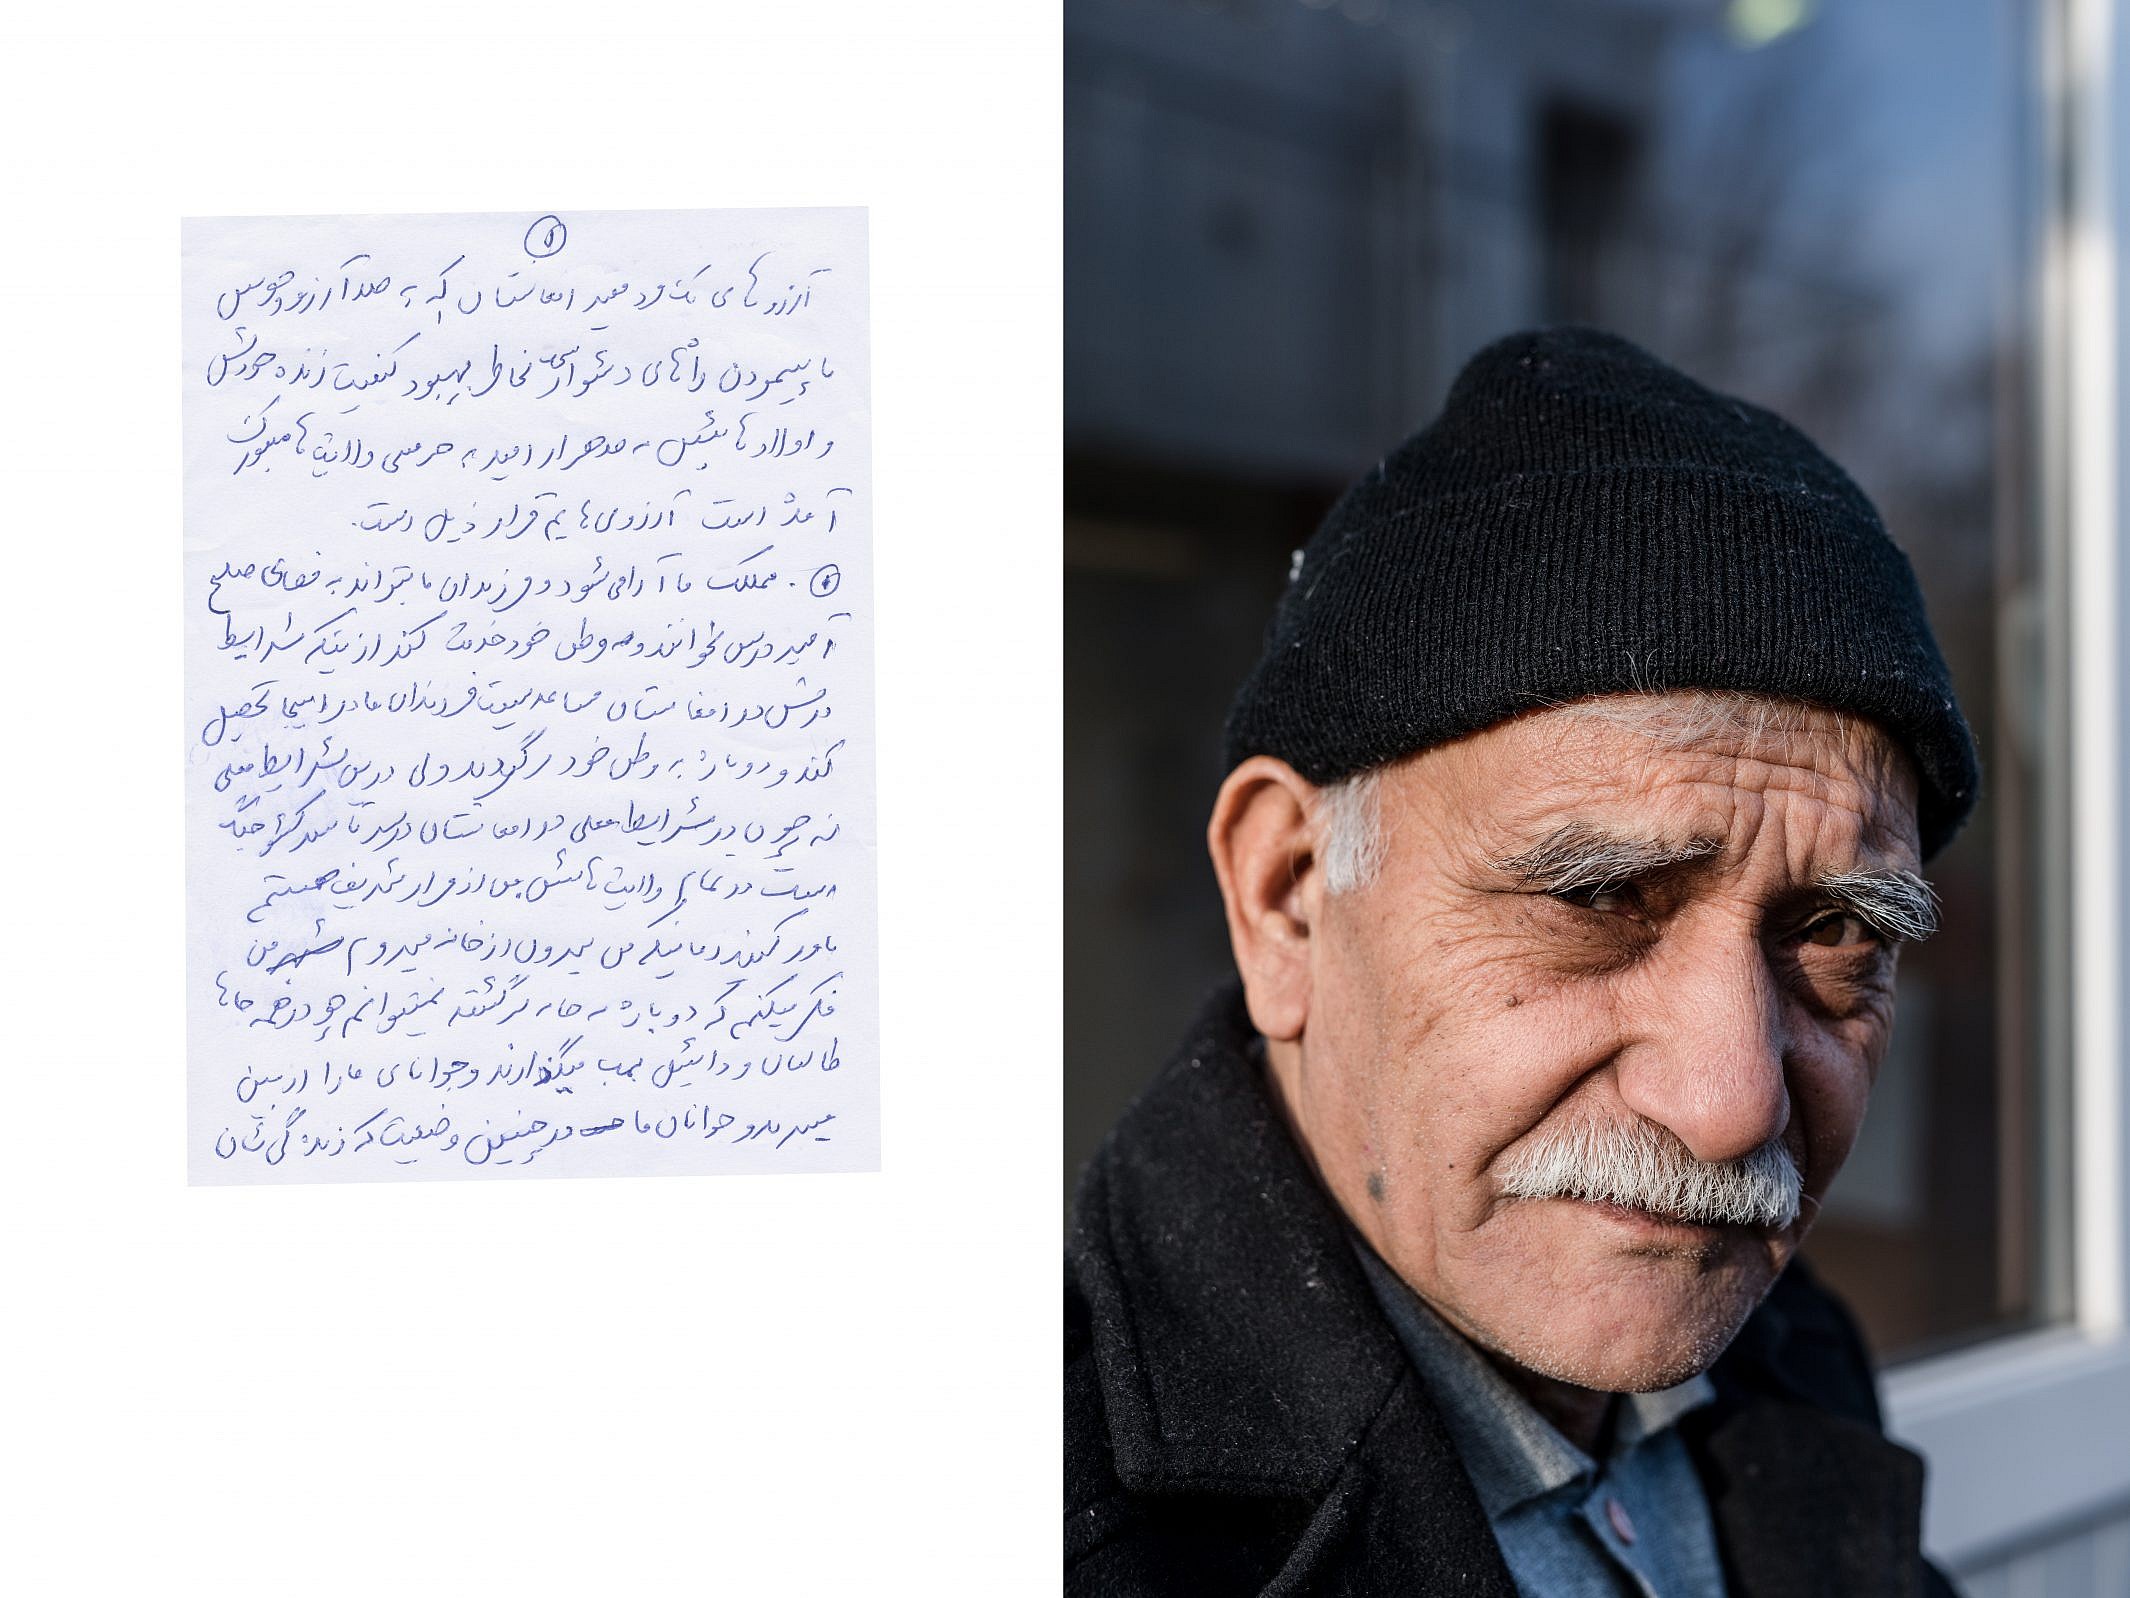 ①
آرزوهای یک فرد مقیم افغانستان که به صد آرزو و هوس
با پیمودن راه های دشواری بخاطر بهبود کیفیت زنده خودش
و اولاد هایش به صد هزار امید به جرمنی
آمده است آرزوی هایم قرار ذیل است.
① . مملکت ما آرام شود و فرزندان ما بتواند به فضای صلح
آمیز درس بخوانند و به وطن خود خدمت کند از اینکه شرایط
درسی در افغانستان مساعد نیست فرزندان ما در اینجا تحصیل
کند و دوباره به وطن خود برگردند ولی درین شرایط فعلی
نه چون در شرایط فعلی در افغانستان جنگ
است در تمام ولایت هایش من از مزار شریف هستم
باور کنید زمانیکه من بیرون از خانه میروم من
فکر میکنم که دوباره به خانه برگشته نمیتوانم چون در همه جاها
طالبان و داعش بمب میگذارند و جوانان ما را از بین
میبرند و جوانان ما در چنین وضعیت که زندگی شان